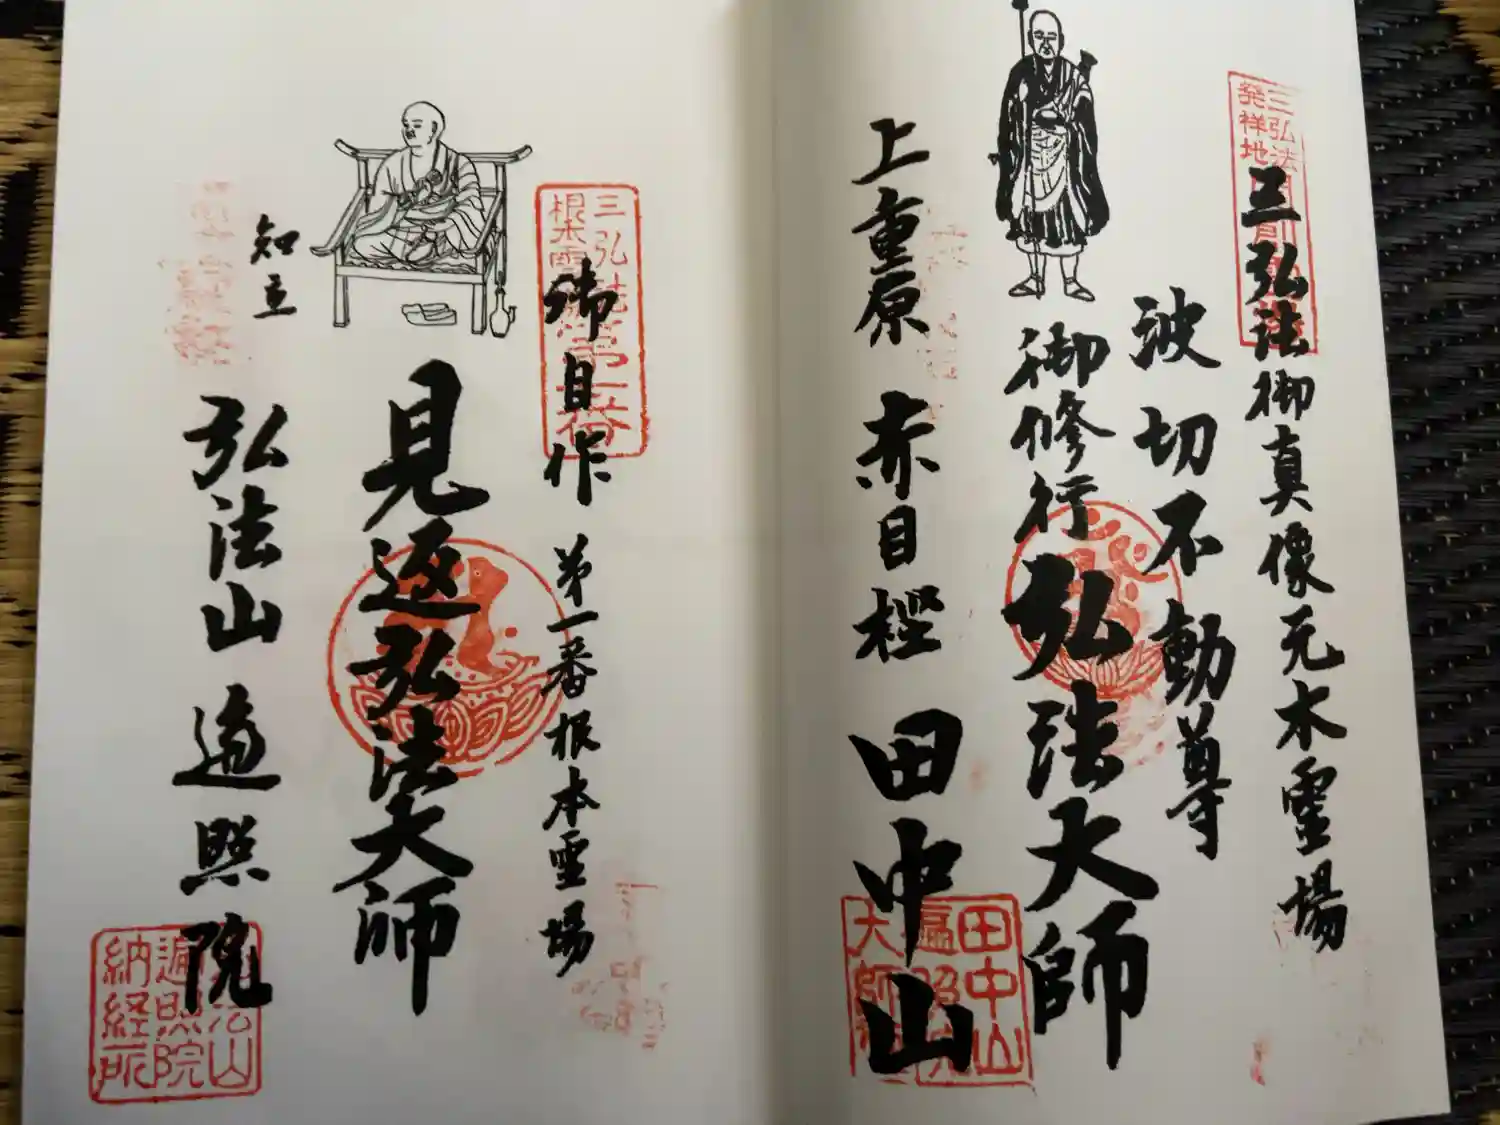 三弘法
発祥地
三弘法御真像元木霊場
波切不動尊
御修行弘法大師
上重原 赤目樫 田中山
田中山
遍照
大師
三弘法第一番
根本霊
御自作 第一番根本霊場
見返弘法大師
知立
弘法山 遍照院
弘法山
遍照院
納経所